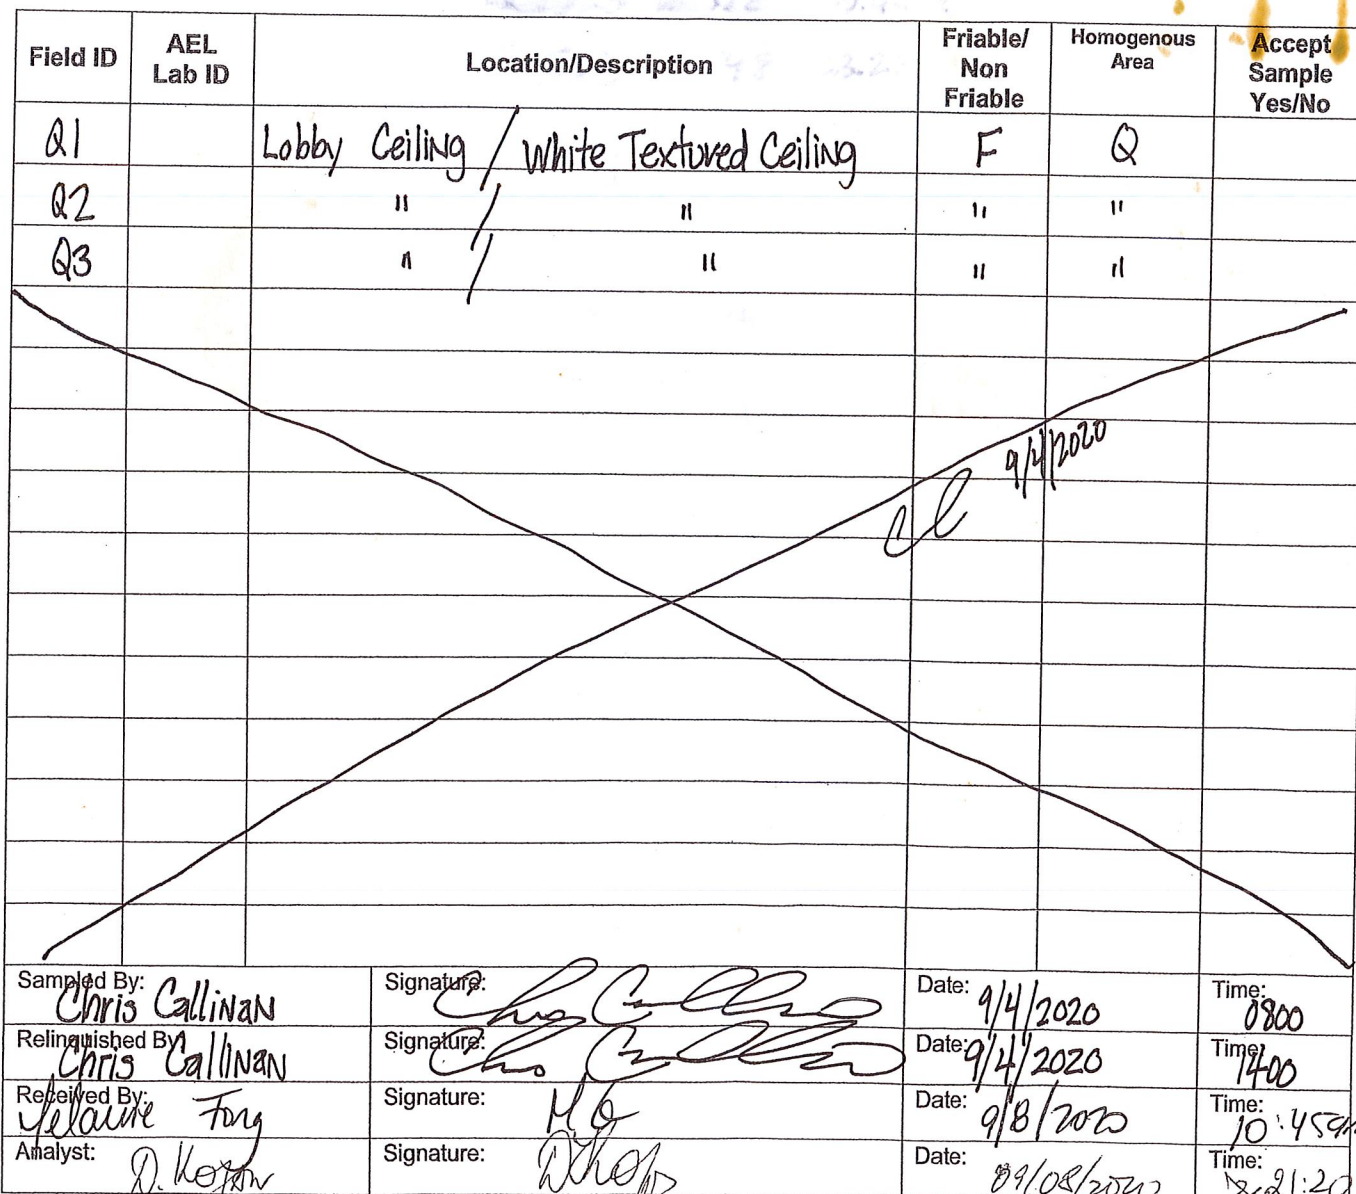 Field ID AEL Lab ID Location/Description Friable/ Non Friable Homogenous Area Accept Sample Yes/No
Q1 Lobby Ceiling / White Textured Ceiling F Q
Q2 " / " " "
Q3 " / " " "
9/4/2020
Sampled By: Chris Callinan Signature: Date: 9/4/2020 Time: 0800
Relinquished By: Chris Callinan Signature: Date: 9/4/2020 Time: 1400
Received By: Fong Signature: Date: 9/8/2020 Time: 10:45
Analyst: Signature: Date: 09/08/2020 Time: 21:20